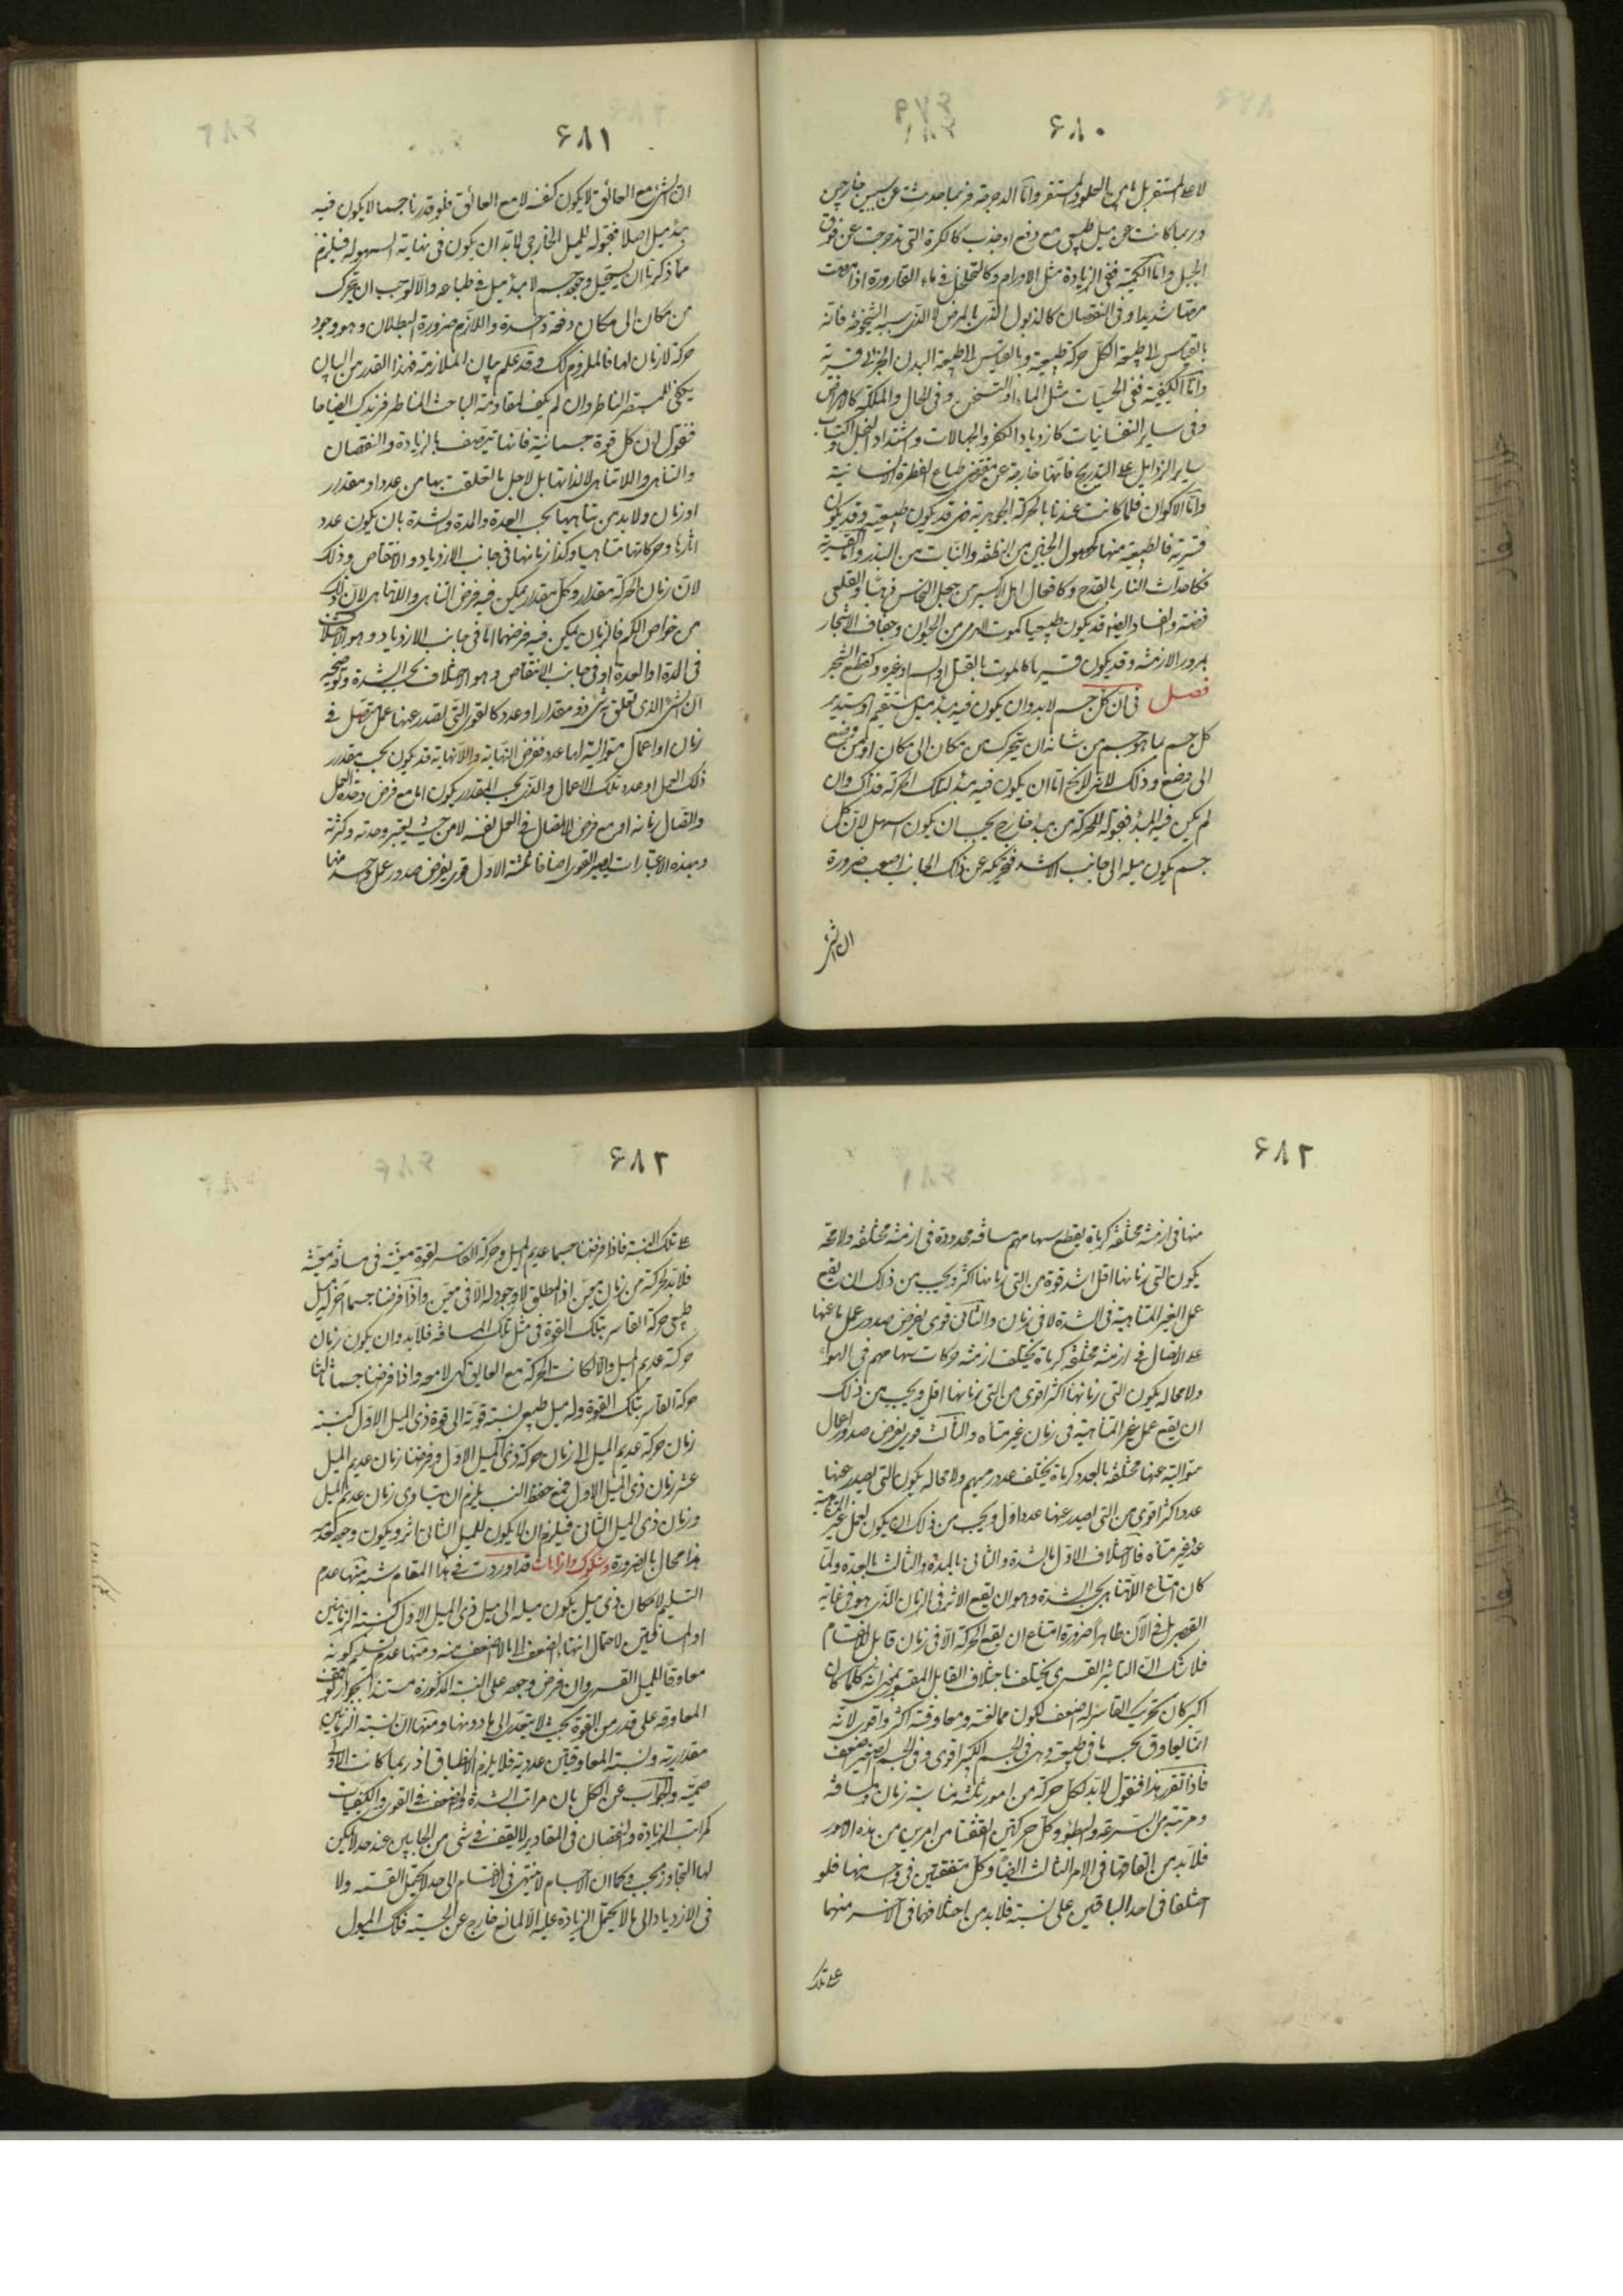 ۶۸۰
لا على المستقر بل ما بين العلو والمستقر واما الدحرجة فربما حدثت عن سببين خارجين
وربما كانت عن ميل طبيعي مع دفع او جذب كالكرة التى تدحرجت عن فوق
الجبل واما الكمية ففى الزيادة مثل الاورام وكالتخلخل فى ماء القارورة اذا مصّت
مصّا شديدا وفى النقصان كالذبول الذى بالمرض لا الذى سببه الشيخوخة فانه
بالقياس الى طبيعة الكل حركة طبيعية وبالقياس الى طبيعة البدن الجزئى قسرية
واما الكيفية ففى الحسيات مثل الماء اذا تسخن وفى الحال والملكة كالامراض
وفى ساير النفسانيات كازدياد الكفر والجهالات واشتداد البخل واكتساب
ساير الرذايل على التدريج فانها خارجة عن مقتضى طباع الفطرة الانسانية
واما الاكوان فلما كانت عندنا بالحركة الجوهرية فهى قد يكون طبيعية وقد يكون
قسرية فالطبيعية منها كحصول الجنين من النطفة والنبات من البذر واما القسرية
فكاحداث النار بالقدح وكافعال اهل الاكسير من جعل النحاس ذهبا والقلعى
فضة والفساد ايضا قد يكون طبيعيا كموت الهرمى من الحيوان وجفاف الاشجار
بمرور الازمنة وقد يكون قسريا كالموت بالقتل او السم او غيره وكقطع الشجر
فصل فى ان كل جسم لابد وان يكون فيه مبدء ميل مستقيم او مستدير
كل جسم بما هو جسم من شانه ان يتحرك من مكان الى مكان او من وضع
الى وضع وذلك لانه لا يخ اما ان يكون فيه مبدء لتلك الحركة فذاك وان
لم يكن فيه المبدء فقبوله للحركة من مبدء خارج يجب ان يكون اسهل لان كل
جسم يكون ميله الى جانب الاشد فتحريكه عن ذلك الجانب اصعب ضرورة
ان الشئ
۶۸۱
ان الشئ مع العائق لا يكون كنفسه لا مع العائق فلو قدرنا جسما لا يكون فيه
مبدء ميل اصلا فقبوله للميل الخارجى لابد ان يكون فى نهاية السهولة فيلزم
مما ذكرنا ان يستحيل وجود جسم لا مبدء ميل فى طباعه والا لوجب ان يتحرك
من مكان الى مكان دفعة واحدة واللازم ضرورة البطلان وهو وجود
حركة لا زمان لها فالملزوم كك وقد علم بيان الملازمة فهذا القدر من البيان
يكفى للمستبصر الناظر وان لم يكف لمقاومة الباحث المناظر فنزيدك ايضاحا
فنقول ان كل قوة جسمانية فانها تتصف بالزيادة والنقصان
والتناهى واللاتناهى لا لذاتها بل لاجل ما تعلقت بها من عدد او مقدار
او زمان ولابد من تناهيها بحسب العدة والمدة والشدة بان يكون عدد
اثارها وحركاتها متناهيا وكذا زمانها فى جانب الازدياد والانتقاص وذلك
لان زمان الحركة مقدار وكل مقدار يمكن فيه فرض التناهى واللاتناهى لان ذلك
من خواص الكم فالزمان يمكن فيه فرضهما اما فى جانب الازدياد وهو الاختلاف
فى المدة او العدة او فى جانب الانتقاص وهو الاختلاف بحسب الشدة وتوضيحه
ان الشئ الذى تعلق به شئ ذو مقدار او عدد كالقوى التى يصدر عنها عمل متصل فى
زمان او اعمال متوالية لها عدد ففرض النهاية واللانهاية قد يكون بحسب مقدار
ذلك العمل او عدد تلك الاعمال والذى بحسب المقدار يكون اما مع فرض وحدة العمل
واتصال زمانه او مع فرض الاتصال فى العمل نفسه لا من حيث يعتبر وحدته وكثرته
وبهذه الاعتبارات يصير القوى اصنافا ثلثة الاول قوى يفرض صدور عمل واحد منها
۶۸۲
منها فى ازمنة مختلفة كرماة يقطع سهامهم مسافة محدودة فى ازمنة مختلفة ولا محة
يكون التى زمانها اقل اشد قوة من التى زمانها اكثر ويجب من ذلك ان يقع
عمل الغير المتناهية فى الشدة لا فى زمان والثانى قوى يفرض صدور عمل ما عنها
على الاتصال فى ازمنة مختلفة كرماة يختلف ازمنة حركات سهامهم فى الهواء
ولا محالة يكون التى زمانها اكثر اقوى من التى زمانها اقل ويجب من ذلك
ان يقع عمل غير المتناهية فى زمان غير متناه والثالث قوى يفرض صدور اعمال
متوالية عنها مختلفة بالعدد كرماة يختلف عدد رميهم ولا محالة يكون التى يصدر عنها
عدد اكثر اقوى من التى يصدر عنها عدد اول ويجب من ذلك ان يكون لعمل غير المتناهية
عدد غير متناه فالاختلاف الاول بالشدة والثانى بالمدة والثالث بالعدة ولما
كان امتناع اللاتناهى بحسب الشدة وهو ان يقع الاثر فى الزمان الذى هو فى غاية
القصر بل فى الآن ظاهرا ضرورة امتناع ان يقع الحركة الا فى زمان قابل للانقسام
فلا شك ان التاثير القسرى يختلف باختلاف القابل المقسور بمعنى انه كلما كان
اكبر كان تحريك القاسر له اضعف لكون ممانعته ومعاوقته اكثر واقوى لانه
انما يعاوق بحسب ما فى طبيعته وهى فى الجسم الكبير اقوى وفى الجسم الصغير اضعف
فاذا تقرر هذا فنقول لابد لكل حركة من امور ثلثة متناسبة زمان ومسافة
ومرتبة من السرعة والبطوء وكل حركتين اتفقتا من امرين من هذه الامور
فلابد من اتفاقهما فى الامر الثالث ايضا وكل متفقتين فى واحد منها فلو
اختلفا فى احد الباقيين على نسبة فلابد من اختلافهما فى الآخر منهما
على تلك
۶۸۲
على تلك النسبة فاذا فرضنا جسما عديم الميل وحركة القاسر بقوة معينة فى مسافة معينة
فلابد لحركته من زمان معين اذ المطلق لا وجود له الا فى معين واذا فرضنا جسما آخر له ميل
طبيعى حركه القاسر بتلك القوة فى مثل تلك المسافة فلابد وان يكون زمان
حركة عديم الميل والا لكانت الحركة مع العايق كهى لا معه واذا فرضنا جسما ثالثا
حركه القاسر بتلك القوة وله ميل طبيعى نسبة قوته الى قوة ذى الميل الاول كنسبة
زمان حركة عديم الميل الى زمان حركة ذى الميل الاول وفرضنا زمان عديم الميل
عشر زمان ذى الميل الاول فمع حفظ النسب يلزم ان يتساوى زمان عديم الميل
وزمان ذى الميل الثانى فيلزم ان لا يكون للميل الثانى اثر ويكون وجوده كعدمه
هذا محال بالضرورة وشكوك وازاحات قد اوردت فى هذا المقام شبه منها عدم
التسليم لامكان ذى ميل يكون ميله الى ميل ذى الميل الاول كنسبة الزمانين
او المسافتين لاحتمال انتهاء الضعف الى ما لا اضعف منه ومنها عدم تسليم كونه
معاوقا للميل القسرى وان فرض وجوده على النسبة المذكورة مستندا بجواز توقف
المعاوقة على قدر من القوة بحيث لا يتعدى الى ما دونها ومنها ان نسبة الزمانين
مقدارية ونسبة المعاوقتين عددية فلا يلزم الانطباق اذ ربما كانت الاولى
صمّية والجواب عن الكل بان مراتب الشدة والضعف فى القوى والكيفيات
كمراتب الزيادة والنقصان فى المقادير لا يقف فى شئ من الجانبين عند حد لا يمكن
لها التجاوز بحسبه وكما ان الاجسام لا ينتهى فى الانقسام الى حد لا يحتمل القسمة ولا
فى الازدياد الى ما لا يحتمل الزيادة عليه الا لمانع خارج عن الجسمية فكك الميول